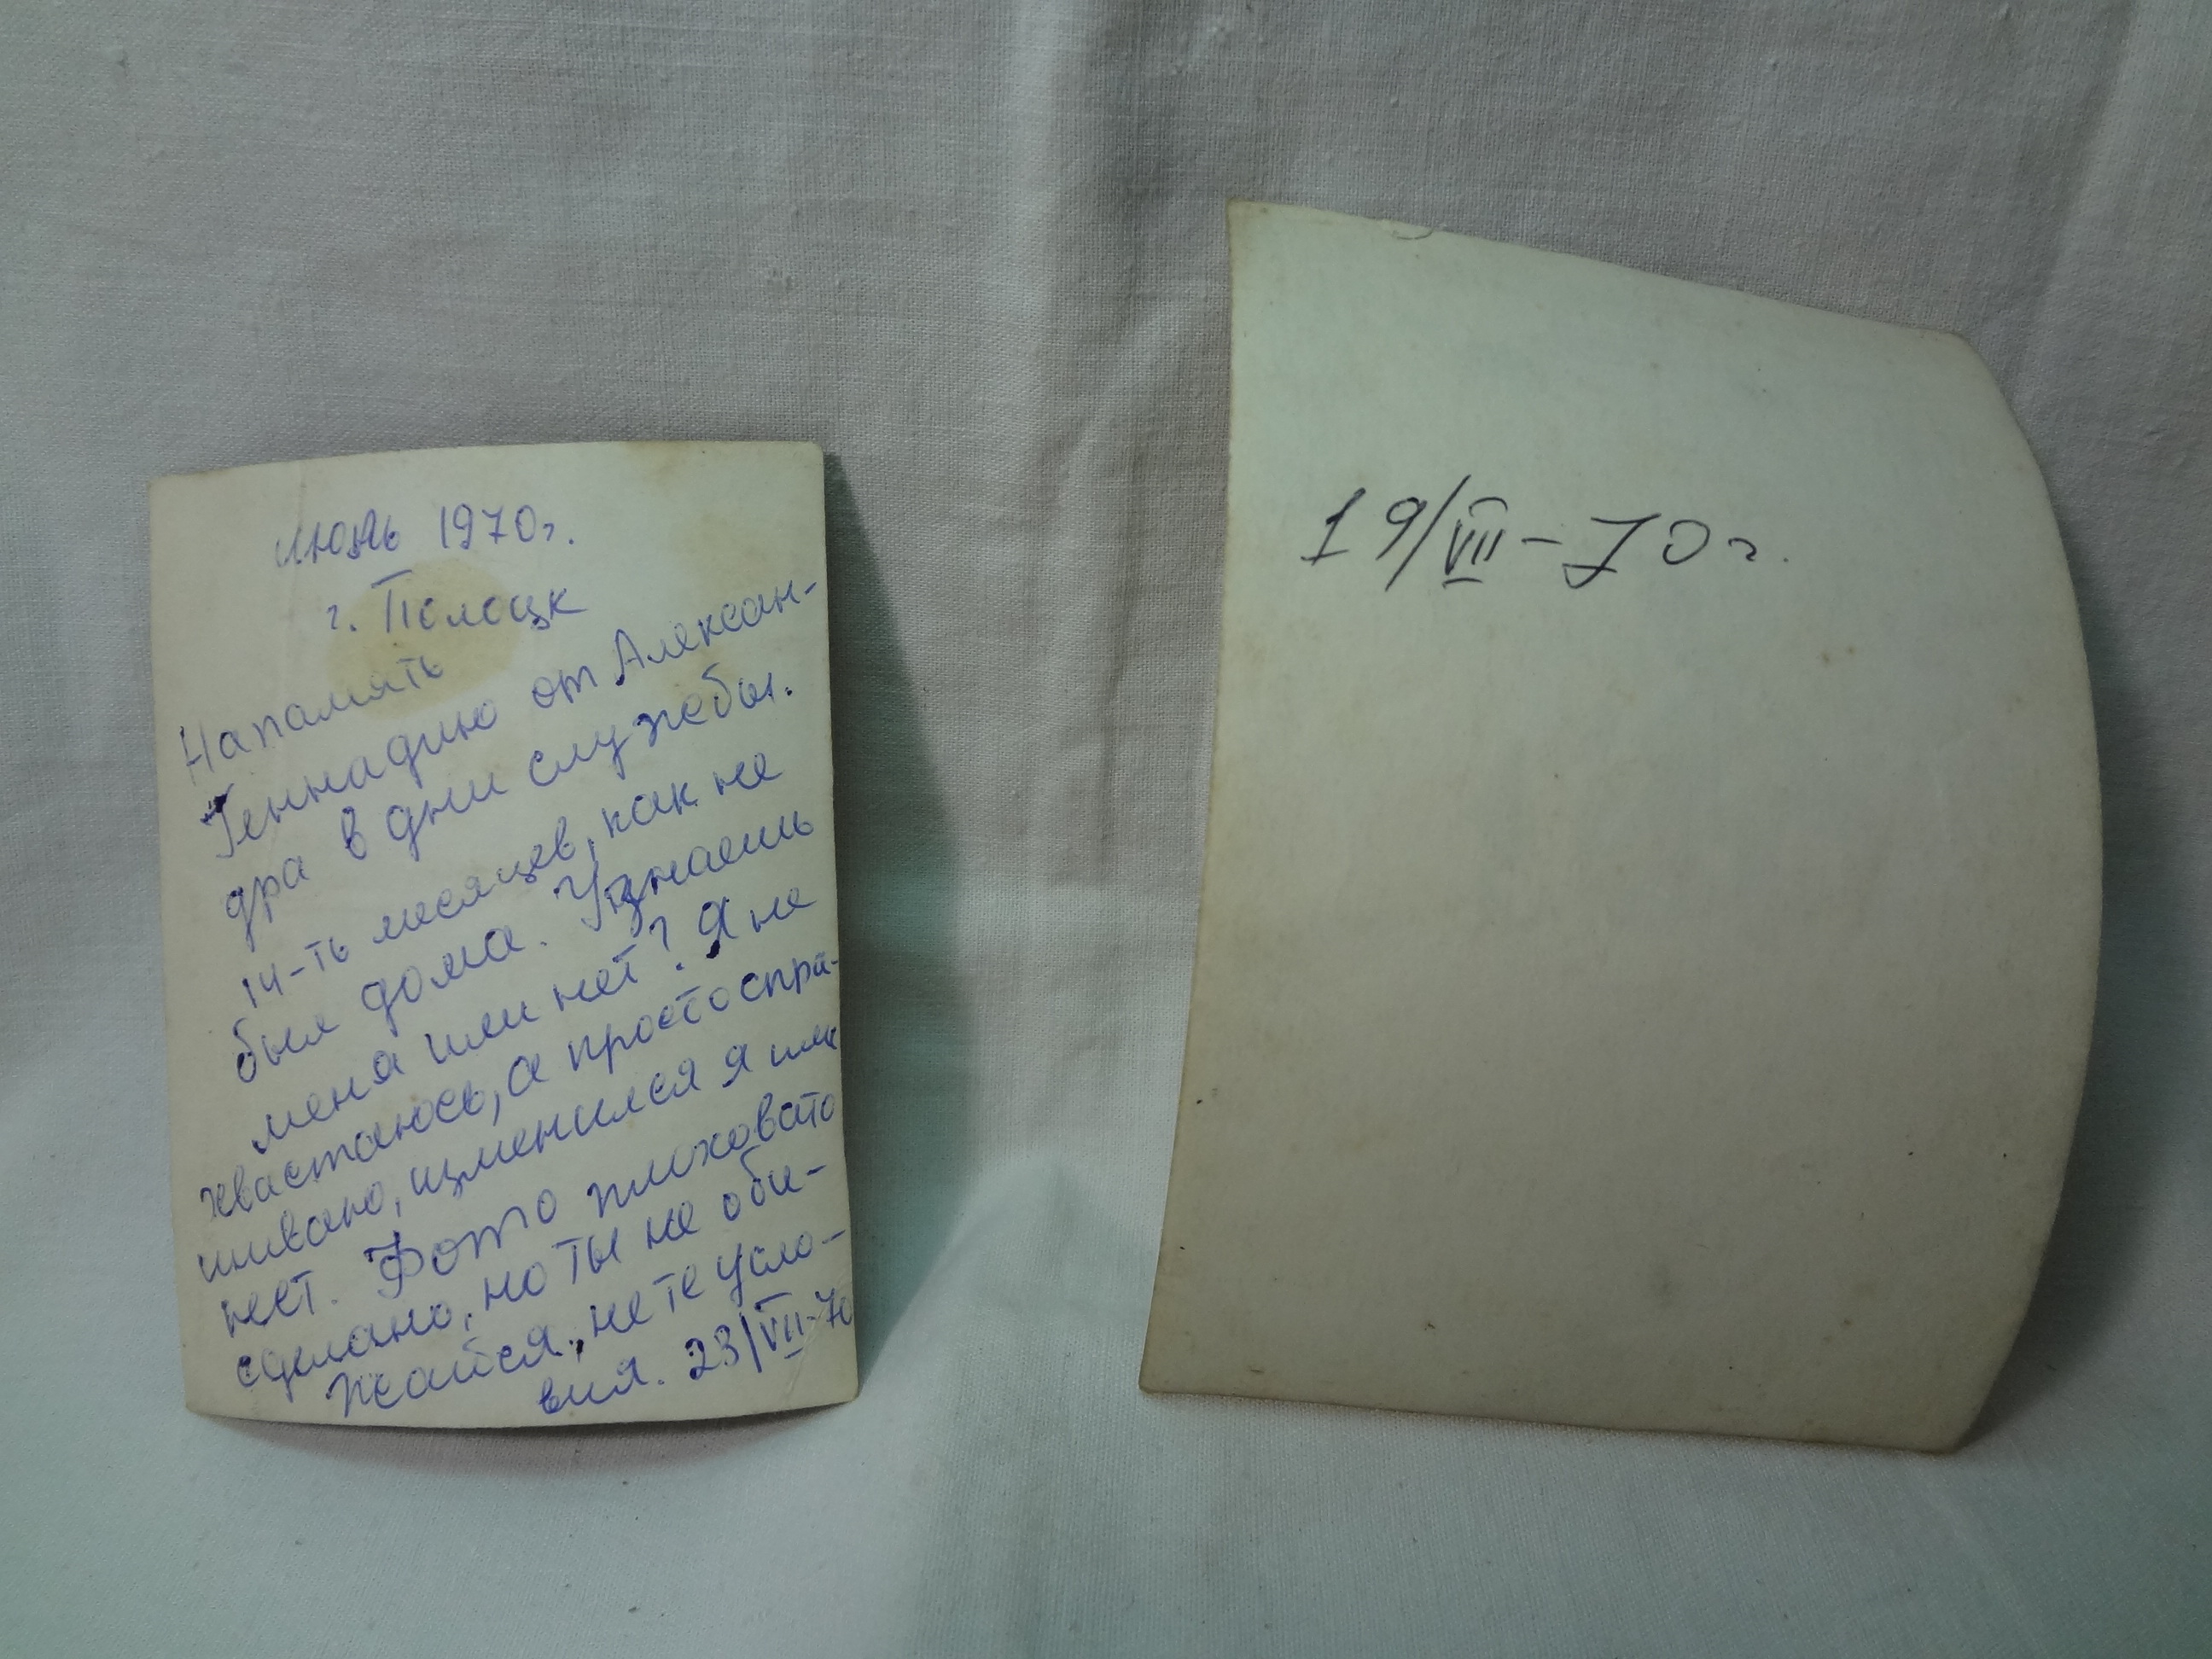 июнь 1970г.
г. Полоцк
На память
Геннадию от Алексан-
дра в дни службы.
14-ть месяцев, как не
был дома. Узнаешь
меня или нет? Я не
хвастаюсь, а просто спра-
шиваю, изменился я или
нет. Фото плоховато
сделано, но ты не оби-
жайся, не те усло-
вия. 23/VII-70
19/VII-70г.